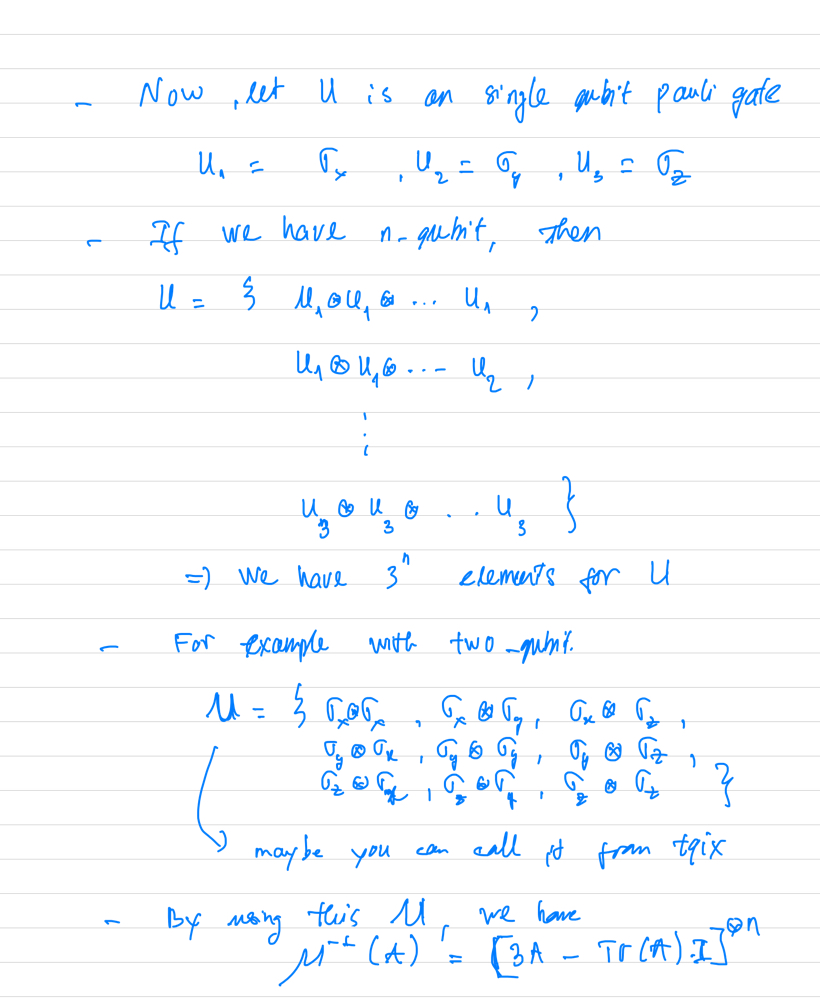 - Now, let U is an single qubit pauli gate
U₁ = σₓ , U₂ = σ_y , U₃ = σ_z
- If we have n-qubit, then
U = { U₁⊗U₁⊗ ... U₁ ,
U₁⊗U₁⊗ ... U₂ ,
⋮
U₃⊗U₃⊗ .. U₃ }
=> We have 3ⁿ elements for U
- For example with two-qubit.
U = { σₓ⊗σₓ , σₓ⊗σ_y , σₓ⊗σ_z ,
σ_y⊗σₓ , σ_y⊗σ_y , σ_y⊗σ_z ,
σ_z⊗σₓ , σ_z⊗σ_y , σ_z⊗σ_z }
maybe you can call it from tqix
- By using this U, we have
M⁻¹(A) = [3A - Tr(A).I]^⊗n